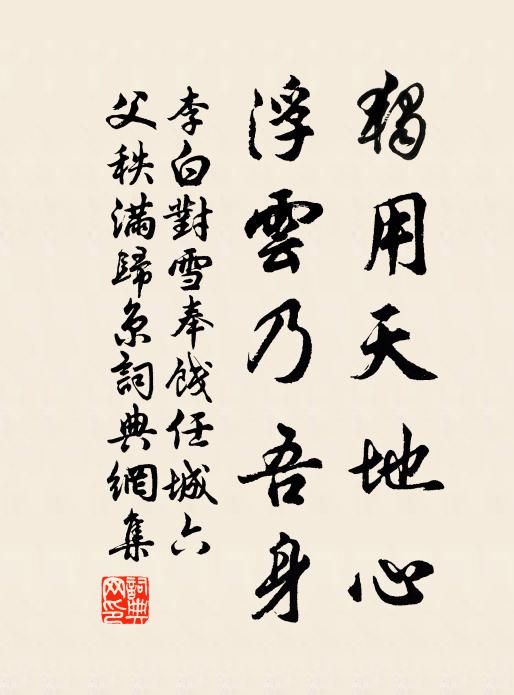 獨用天地心
浮雲乃吾身
李白對雪奉餞任城六
父秩滿歸京詞典網集
詞典網印